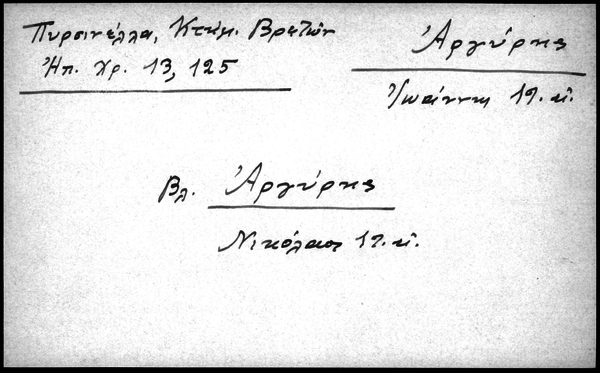 Πυρσινέλλα, Κτημ. Βρετών
Ἠπ. Χρ. 13, 125
Ἀργύρης
Ἰωάννης 19. αἰ.
Βλ. Ἀργύρης
Νικόλαος 19. αἰ.